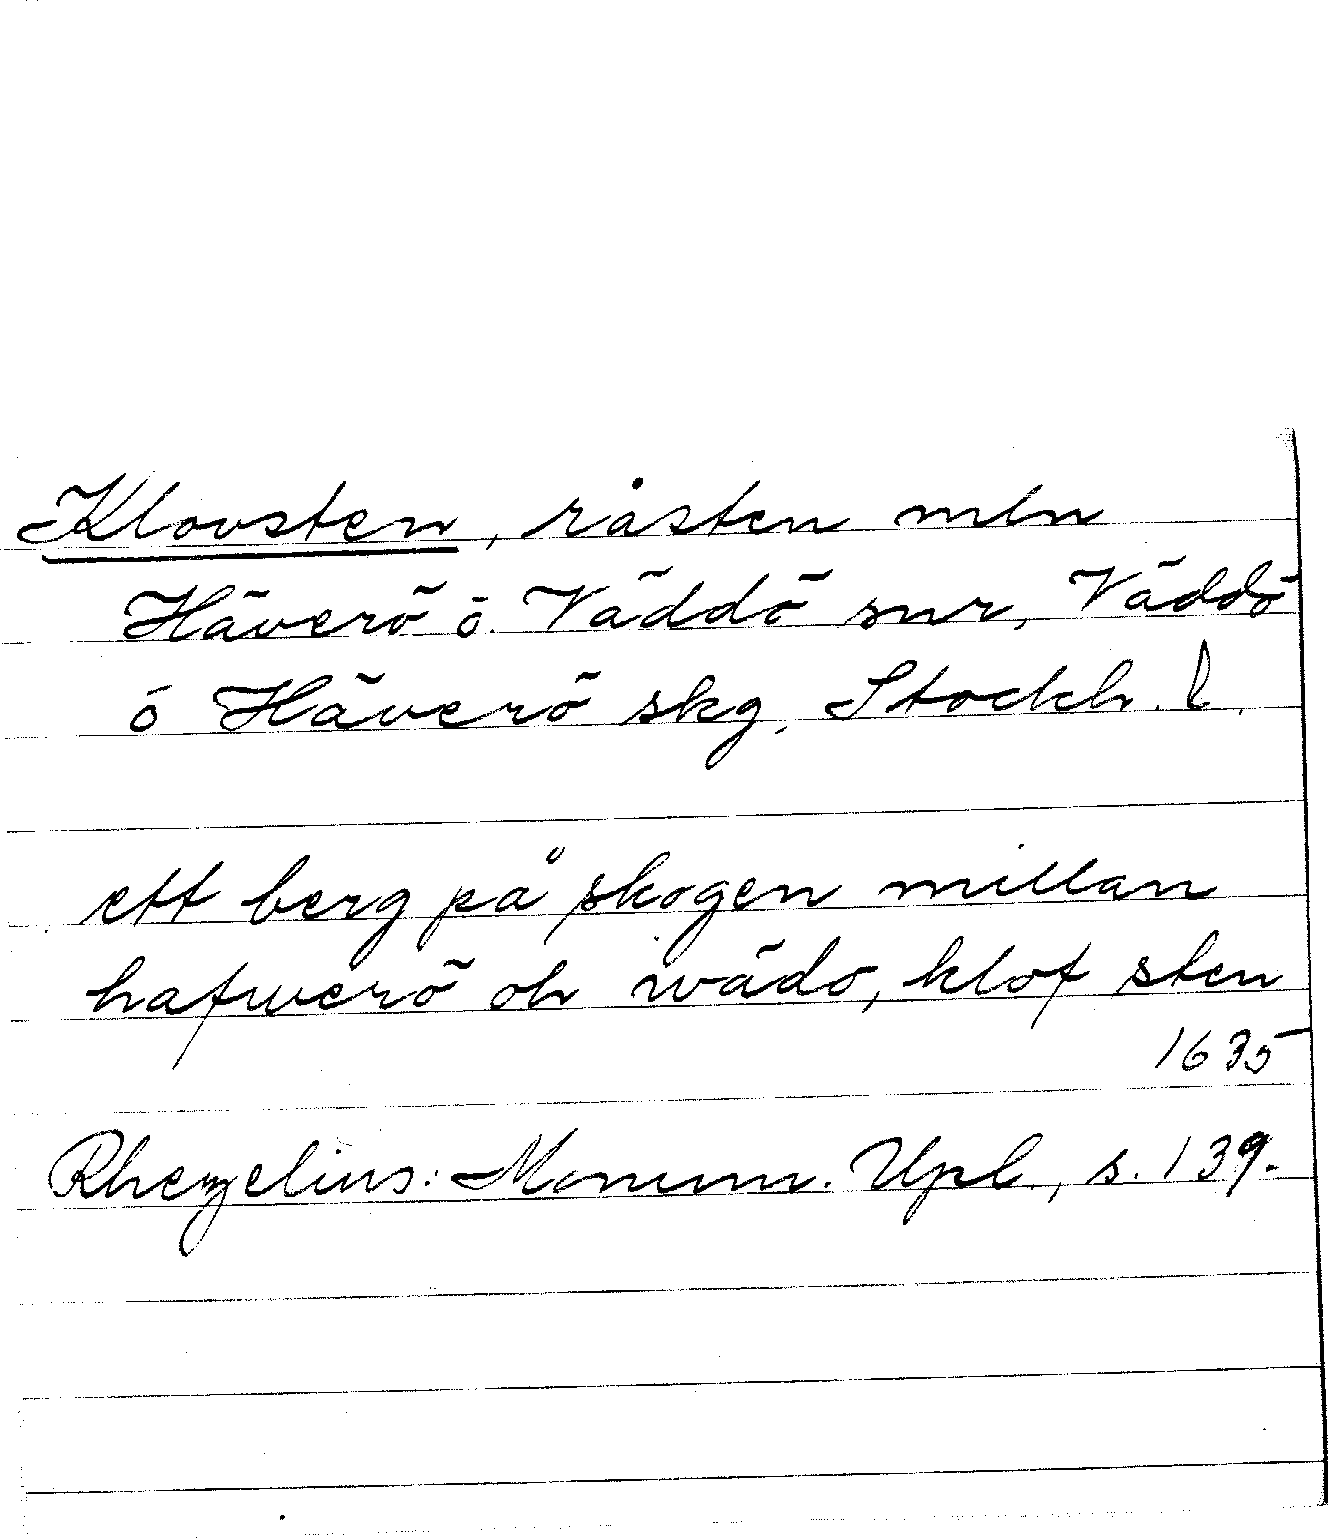 Klovsten, råsten mln
Häverö o. Väddö snr, Väddö
o Häverö skg, Stockh. l.
ett berg på skogen millan
hafwerö oh wädo, klof sten
1635
Rhezelius: Monum. Upl., s. 139.